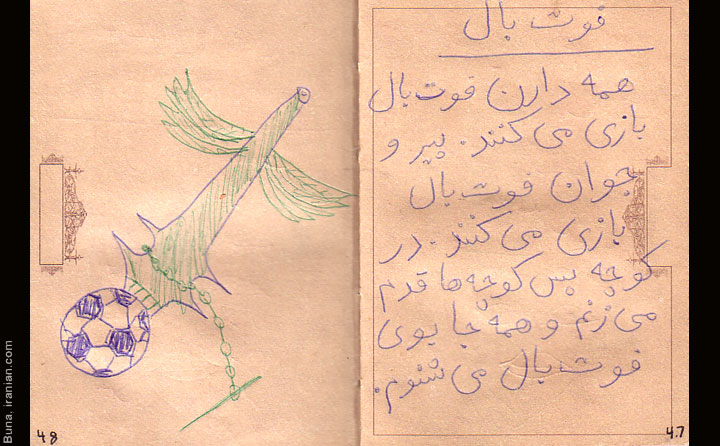 فوت بال
همه دارن فوت بال
بازی می کنند. پیر و
جوان فوت بال
بازی می کنند. در
کوچه پس کوچه ها قدم
می زنم و همه جا بوی
فوت بال می شنوم.
47
48
Buna, iranian.com